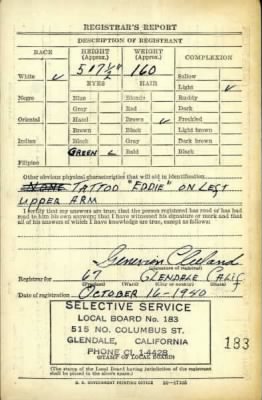 REGISTRAR'S REPORT
DESCRIPTION OF REGISTRANT
RACE HEIGHT (Approx.) WEIGHT (Approx.) COMPLEXION
5' 7 1/2" 160
White ✓ Sallow
EYES HAIR Light ✓
Negro Blue Blonde Ruddy
Gray Red Dark
Oriental Hazel Brown ✓ Freckled
Brown Black Light brown
Indian Black Gray Dark brown
GREEN ✓ Bald Black
Filipino
Other obvious physical characteristics that will aid in identification
NONE TATTOO "EDDIE" ON LEFT
UPPER ARM
I certify that my answers are true; that the person registered has read or has had
read to him his own answers; that I have witnessed his signature or mark and that
all of his answers of which I have knowledge are true, except as follows:
Cleeland
(Signature of registrar)
Registrar for 67 GLENDALE CALIF
(Precinct) (Ward) (City or county) (State)
Date of registration OCTOBER 16-1940
SELECTIVE SERVICE
LOCAL BOARD No. 183
515 NO. COLUMBUS ST.
GLENDALE, CALIFORNIA
PHONE CI. 1-4428
183
(STAMP OF LOCAL BOARD)
(The stamp of the Local Board having jurisdiction of the registrant
shall be placed in the above space.)
U. S. GOVERNMENT PRINTING OFFICE